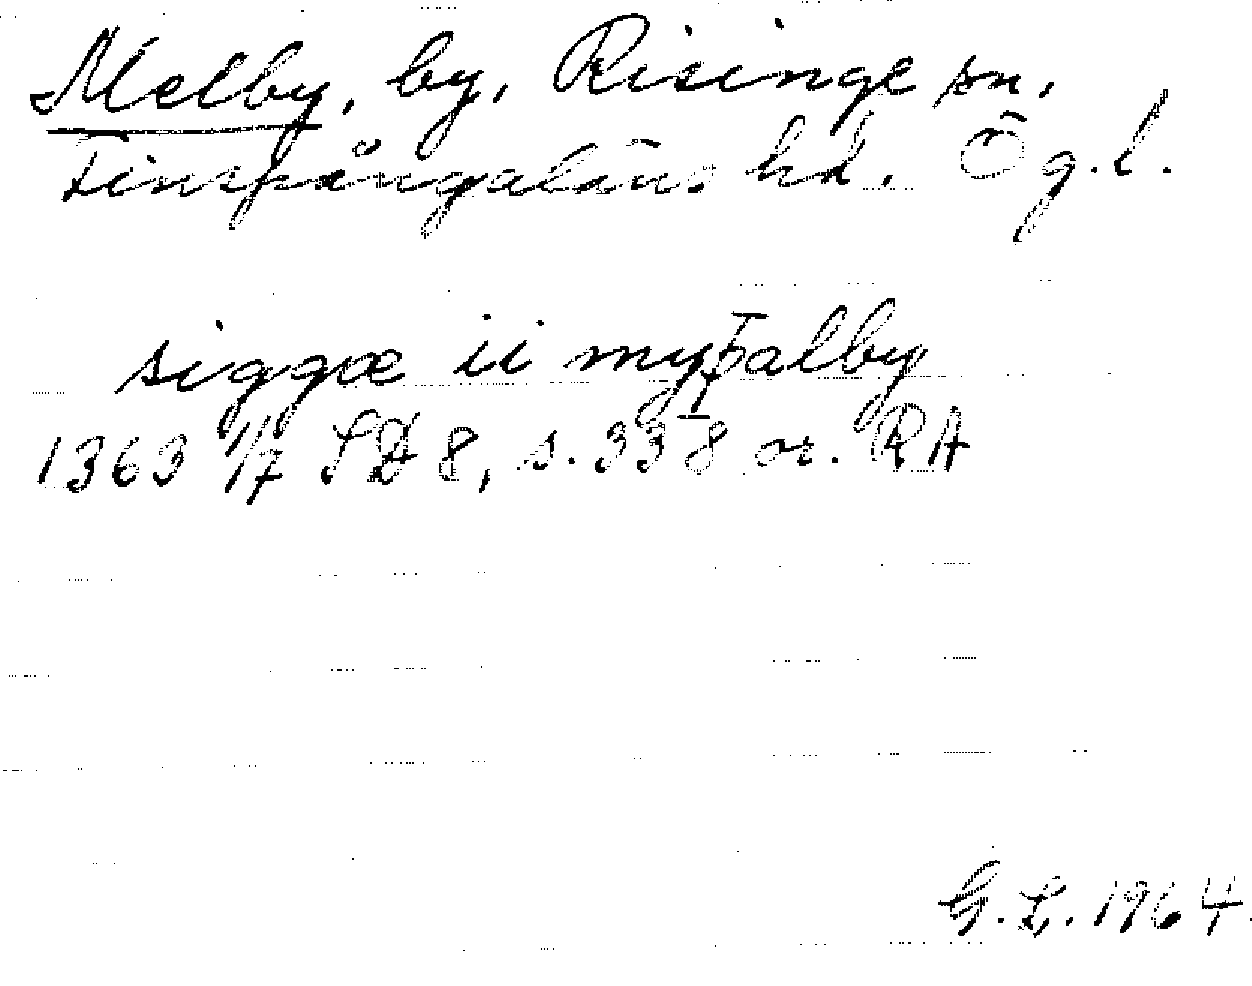 Melby, by, Risinge sn,
Finspångaläns hd. Ög.l.
siggæ ii myþalby
1363 1/7 SD 8, s. 338 or. RA
G. L. 1964.